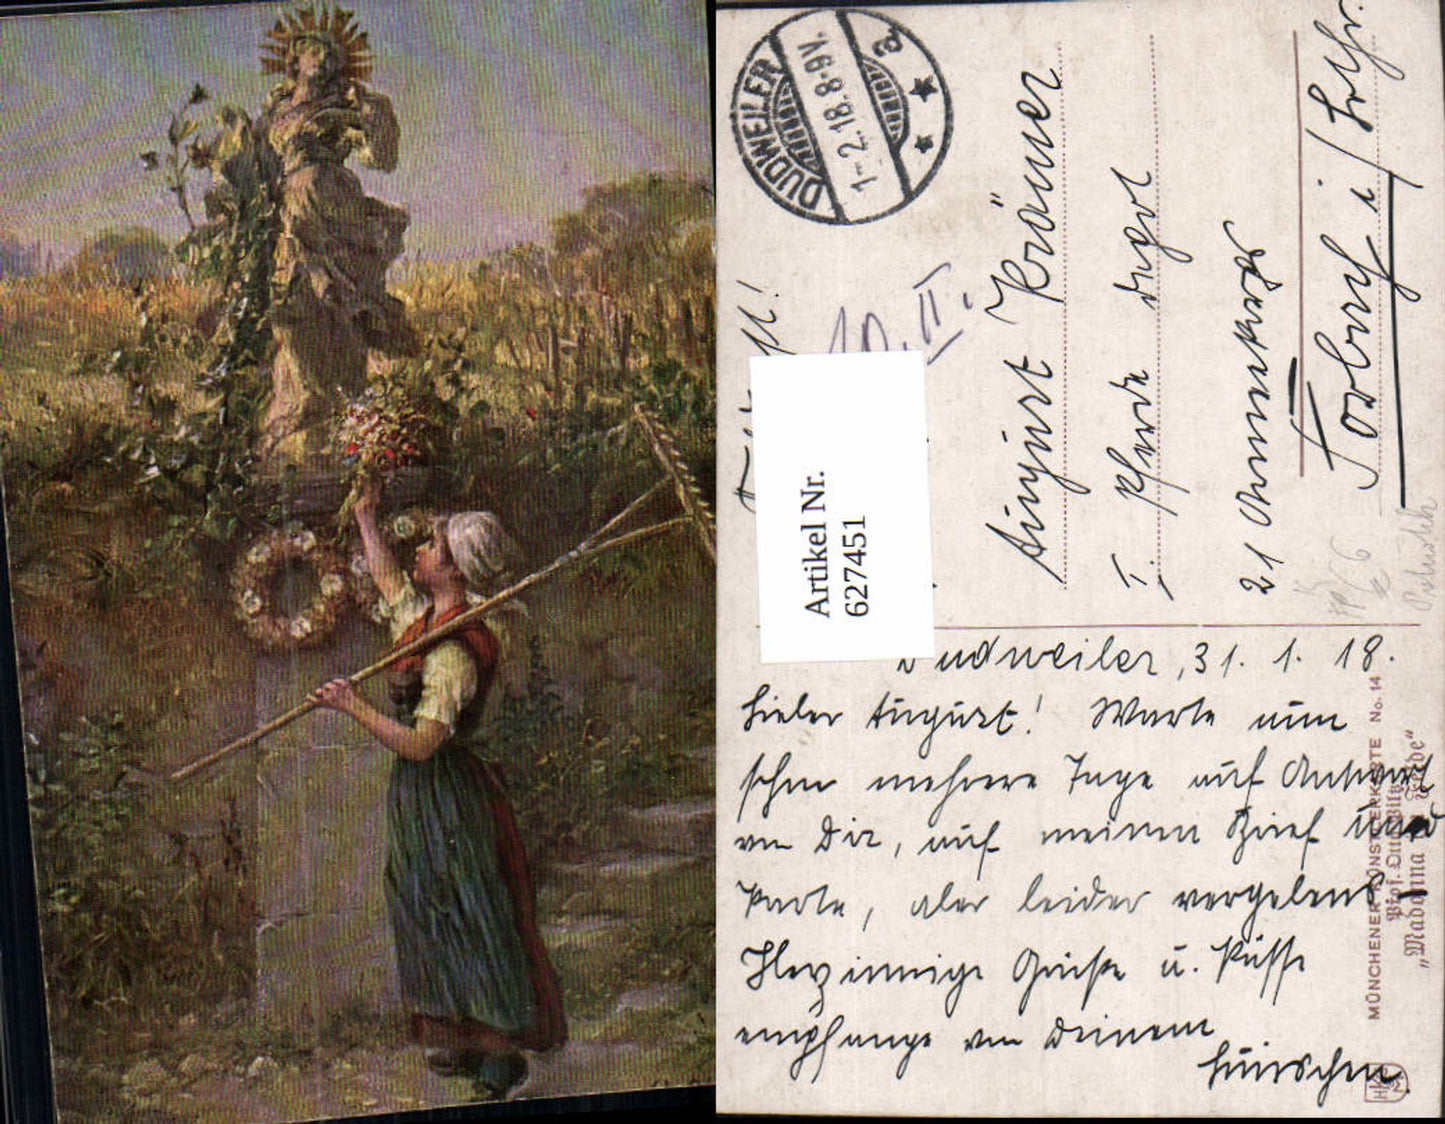 DUDWEILER
1-2.18.8-9V.
a
10. II.
August Krämer
I. Pferde
21
i/Lothr.
Artikel Nr.
627451
Dudweiler, 31. 1. 18.
Lieber August! Warte nun
schon mehrere Tage auf Antwort
von Dir, auf meinen Brief und
Karte, aber leider vergebens.
Herzinnige Grüße u. Küsse
empfange von Deinem
MÜNCHENER KÜNSTLERKARTE No. 14
Prof. Otto
"Madonna